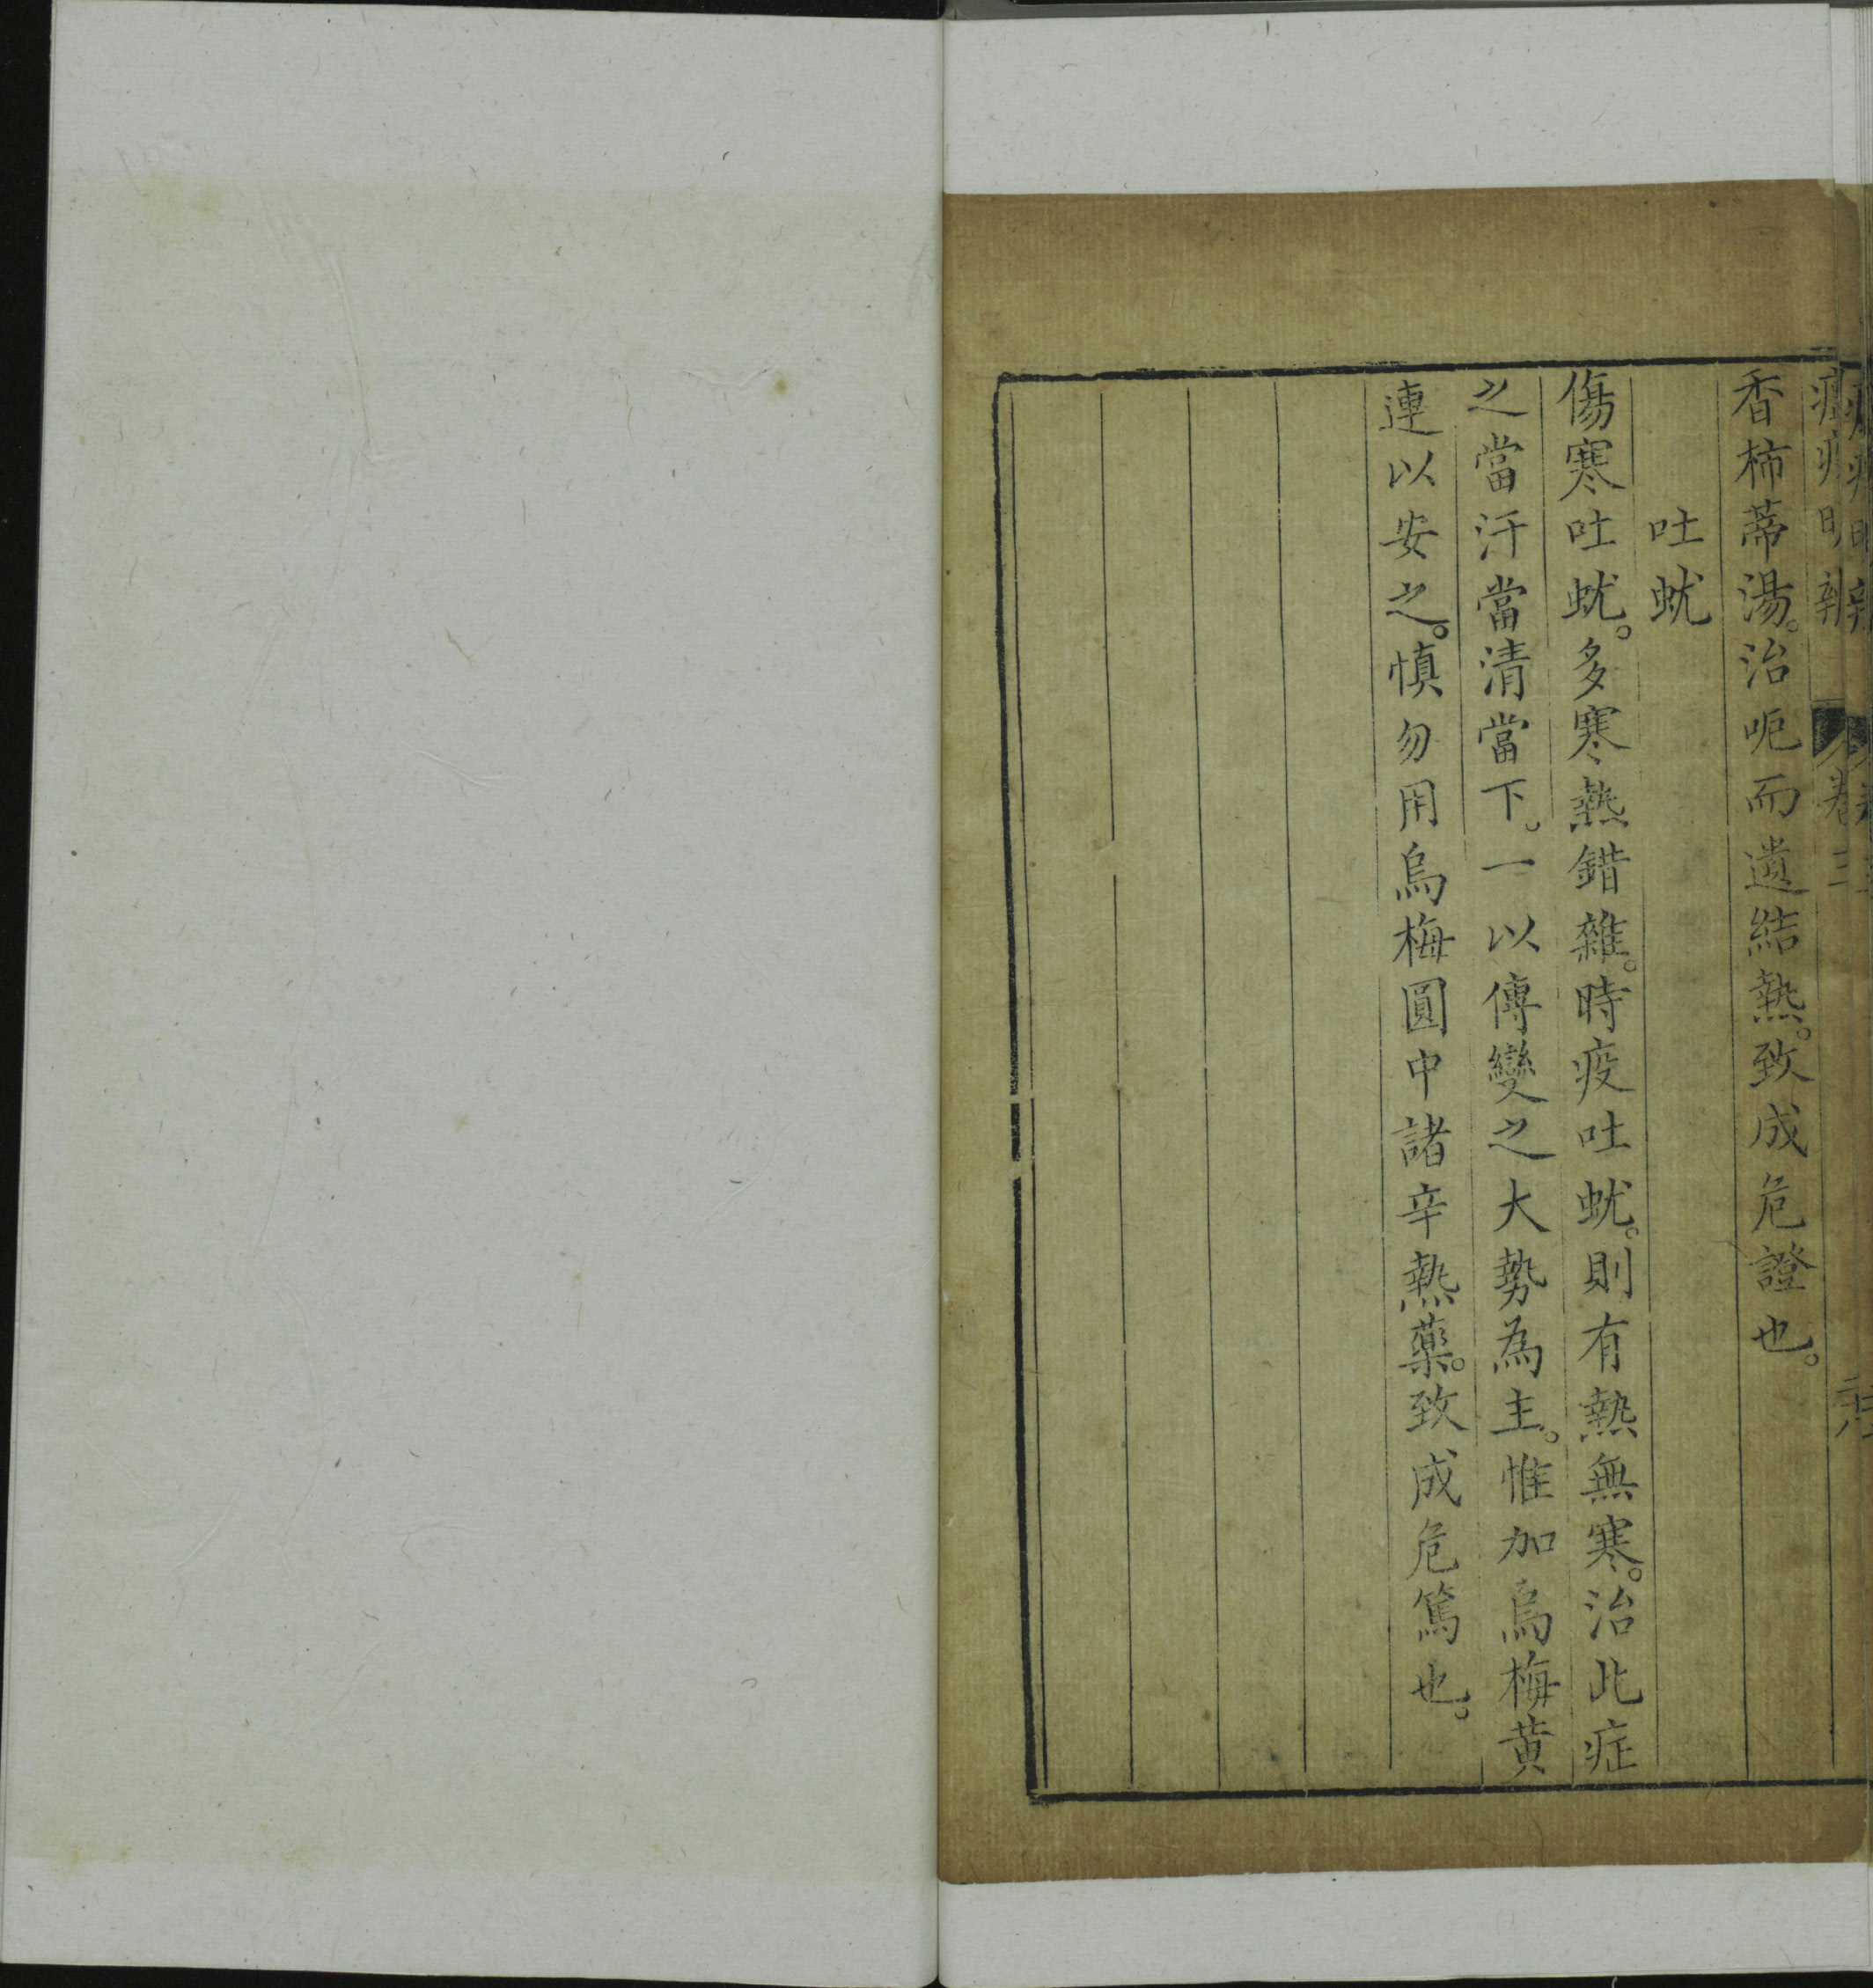 香柿蒂湯。治呃而遺結熱。致成危證也。
吐蚘
傷寒吐蚘。多寒熱錯雜。時疫吐蚘。則有熱無寒。治此症
之當汗當清當下。一以傳變之大勢為主。惟加烏梅黄
連以安之。慎勿用烏梅圓中諸辛熱藥。致成危篤也。